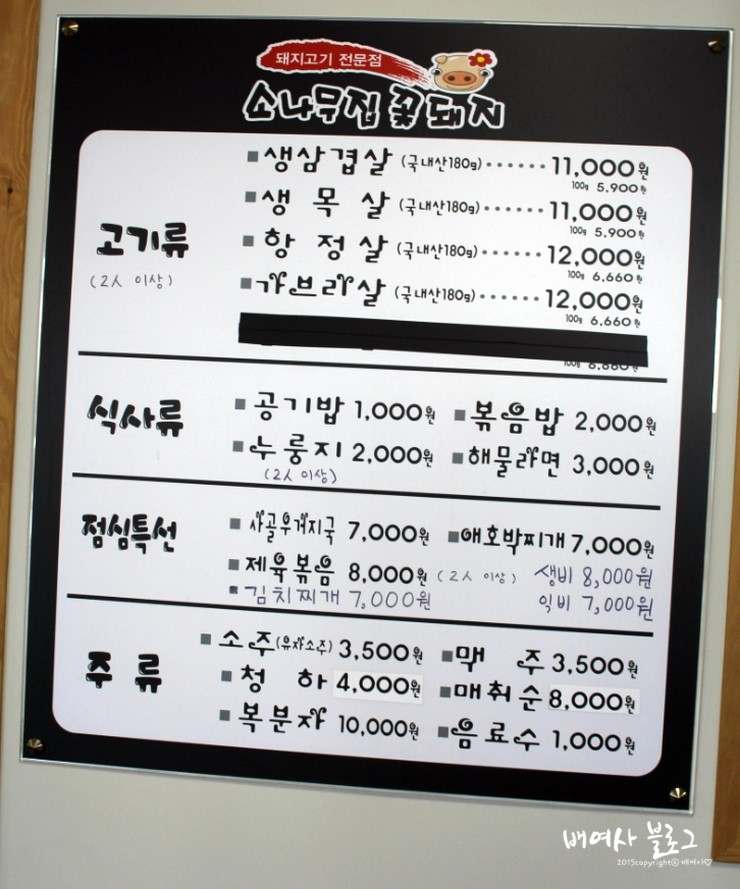 돼지고기 전문점
소나무집 꽃돼지
고기류
(2人 이상)
■ 생삼겹살 (국내산180g) ······ 11,000원
100g 5,900원
■ 생목살 (국내산180g) ······ 11,000원
100g 5,900원
■ 항정살 (국내산180g) ······ 12,000원
100g 6,660원
■ 가브리살 (국내산180g) ······ 12,000원
100g 6,660원
식사류
■ 공기밥 1,000원 ■ 볶음밥 2,000원
■ 누룽지 2,000원 ■ 해물라면 3,000원
(2人 이상)
점심특선
■ 사골우거지국 7,000원 ■ 애호박찌개 7,000원
■ 제육볶음 8,000원 (2人 이상) 생비 8,000원
■ 김치찌개 7,000원 익비 7,000원
주류
■ 소주(유자소주) 3,500원 ■ 맥주 3,500원
■ 청하 4,000원 ■ 매취순 8,000원
■ 복분자 10,000원 ■ 음료수 1,000원
배여사 블로그
2015copyrightⓒ배여사♡